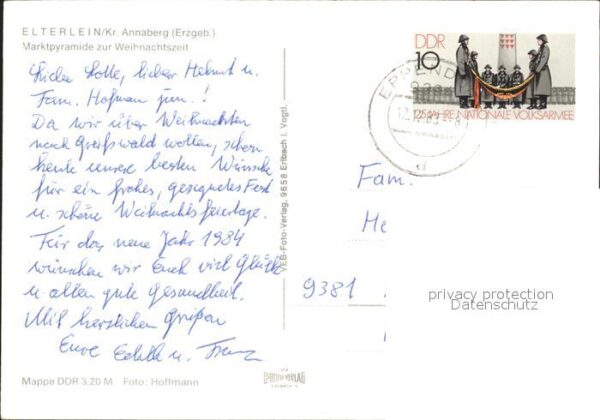 ELTERLEIN/Kr. Annaberg (Erzgeb.)
Marktpyramide zur Weihnachtszeit
Liebe Lotte, lieber Helmut u.
Fam. Hofman jun.!
Da wir über Weihnachten
nach Greifswald wollen, schon
heute unsere besten Wünsche
für ein frohes, gesegnetes Fest
u. schöne Weihnachtsfeiertage.
Für das neue Jahr 1984
wünschen wir Euch viel Glück
u. allen gute Gesundheit.
Mit herzlichen Grüßen
Eure Edith u. Franz
Mappe DDR 3,20 M Foto: Hoffmann
VEB-Foto-Verlag, 9658 Erlbach i. Vogtl.
DDR
10
25 JAHRE NATIONALE VOLKSARMEE
EPPEND
Fam.
He
9381
privacy protection
Datenschutz